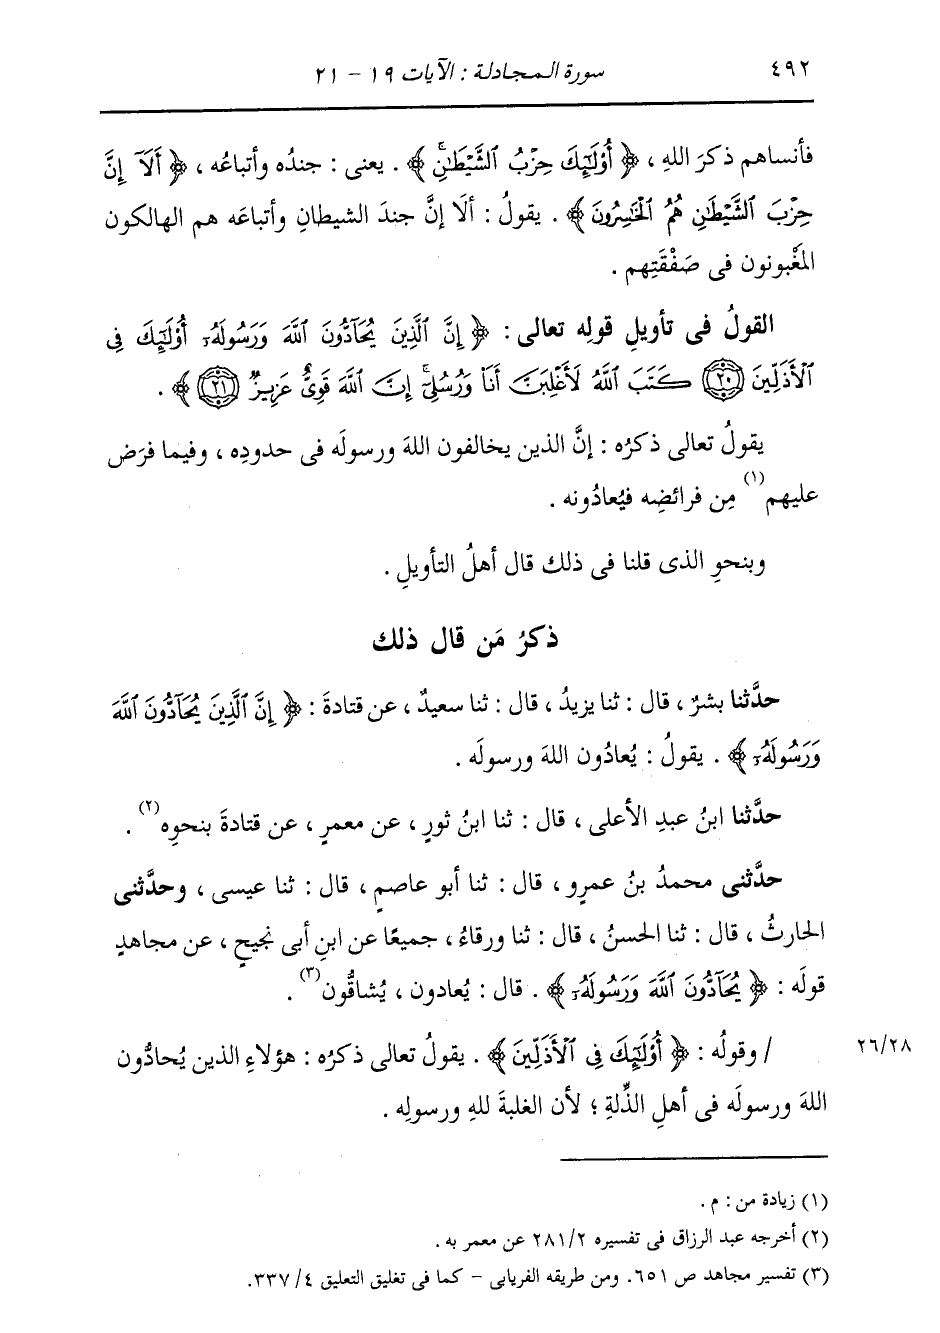 ٤٩٢ سورة المجادلة : الآيات ١٩ - ٢١
فأنساهم ذكرَ اللهِ ، ﴿ أُوْلَٰٓئِكَ حِزْبُ ٱلشَّيْطَٰنِۚ ﴾ . يعنى : جندُه وأتباعُه ، ﴿ أَلَآ إِنَّ
حِزْبَ ٱلشَّيْطَٰنِ هُمُ ٱلْخَٰسِرُونَ ﴾ . يقولُ : ألَا إنَّ جندَ الشيطانِ وأتباعَه هم الهالكون
المَغْبونون فى صَفْقَتِهم .
القولُ فى تأويلِ قولِه تعالى : ﴿ إِنَّ ٱلَّذِينَ يُحَآدُّونَ ٱللَّهَ وَرَسُولَهُۥٓ أُوْلَٰٓئِكَ فِى
ٱلْأَذَلِّينَ (٢٠) كَتَبَ ٱللَّهُ لَأَغْلِبَنَّ أَنَا۠ وَرُسُلِىٓۚ إِنَّ ٱللَّهَ قَوِىٌّ عَزِيزٌ (٢١) ﴾ .
يقولُ تعالى ذكرُه : إنَّ الذين يخالفون اللهَ ورسولَه فى حدودِه ، وفيما فرَض
عليهم(١) مِن فرائضِه فيُعادُونه .
وبنحوِ الذى قلنا فى ذلك قال أهلُ التأويلِ .
ذكرُ مَن قال ذلك
حدَّثنا بشرٌ ، قال : ثنا يزيدُ ، قال : ثنا سعيدٌ ، عن قتادةَ : ﴿ إِنَّ ٱلَّذِينَ يُحَآدُّونَ ٱللَّهَ
وَرَسُولَهُۥٓ ﴾ . يقولُ : يُعادُون اللهَ ورسولَه .
حدَّثنا ابنُ عبدِ الأعلى ، قال : ثنا ابنُ ثورٍ ، عن معمرٍ ، عن قتادةَ بنحوِه(٢) .
حدَّثنى محمدُ بنُ عمرٍو ، قال : ثنا أبو عاصمٍ ، قال : ثنا عيسى ، وحدَّثنى
الحارثُ ، قال : ثنا الحسنُ ، قال : ثنا ورقاءُ ، جميعًا عن ابنِ أبى نجيحٍ ، عن مجاهدٍ
قولَه : ﴿ يُحَآدُّونَ ٱللَّهَ وَرَسُولَهُۥٓ ﴾ . قال : يُعادون ، يُشاقُّون(٣) .
٢٦/٢٨ / وقولُه : ﴿ أُوْلَٰٓئِكَ فِى ٱلْأَذَلِّينَ ﴾ . يقولُ تعالى ذكرُه : هؤلاءِ الذين يُحادُّون
اللهَ ورسولَه فى أهلِ الذِّلةِ ؛ لأن الغلبةَ للهِ ورسولِه .
(١) زيادة من : م .
(٢) أخرجه عبد الرزاق فى تفسيره ٢٨١/٢ عن معمر به .
(٣) تفسير مجاهد ص ٦٥١. ومن طريقه الفريابى - كما فى تغليق التعليق ٤/ ٣٣٧.